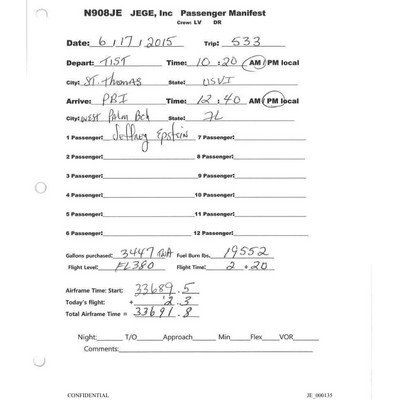 N908JE JEGE, Inc Passenger Manifest
Crew: LV DR
Date: 6 / 17 / 2015 Trip: 533
Depart: TIST Time: 10:20 AM/PM local
City: ST Thomas State: USVI
Arrive: PBI Time: 12:40 AM/PM local
City: West Palm Bch State: FL
1 Passenger: Jeffrey Epstein 7 Passenger:
2 Passenger: 8 Passenger:
3 Passenger: 9 Passenger:
4 Passenger: 10 Passenger:
5 Passenger: 11 Passenger:
6 Passenger: 12 Passenger:
Gallons purchased: 3447 Fuel Burn lbs. 19552
Flight Level: FL380 Flight Time: 2 + 20
Airframe Time: Start: 33689.5
Today's flight: + 2.3
Total Airframe Time = 33691.8
Night: T/O Approach Min Flex VOR
Comments:
CONFIDENTIAL JE_000135